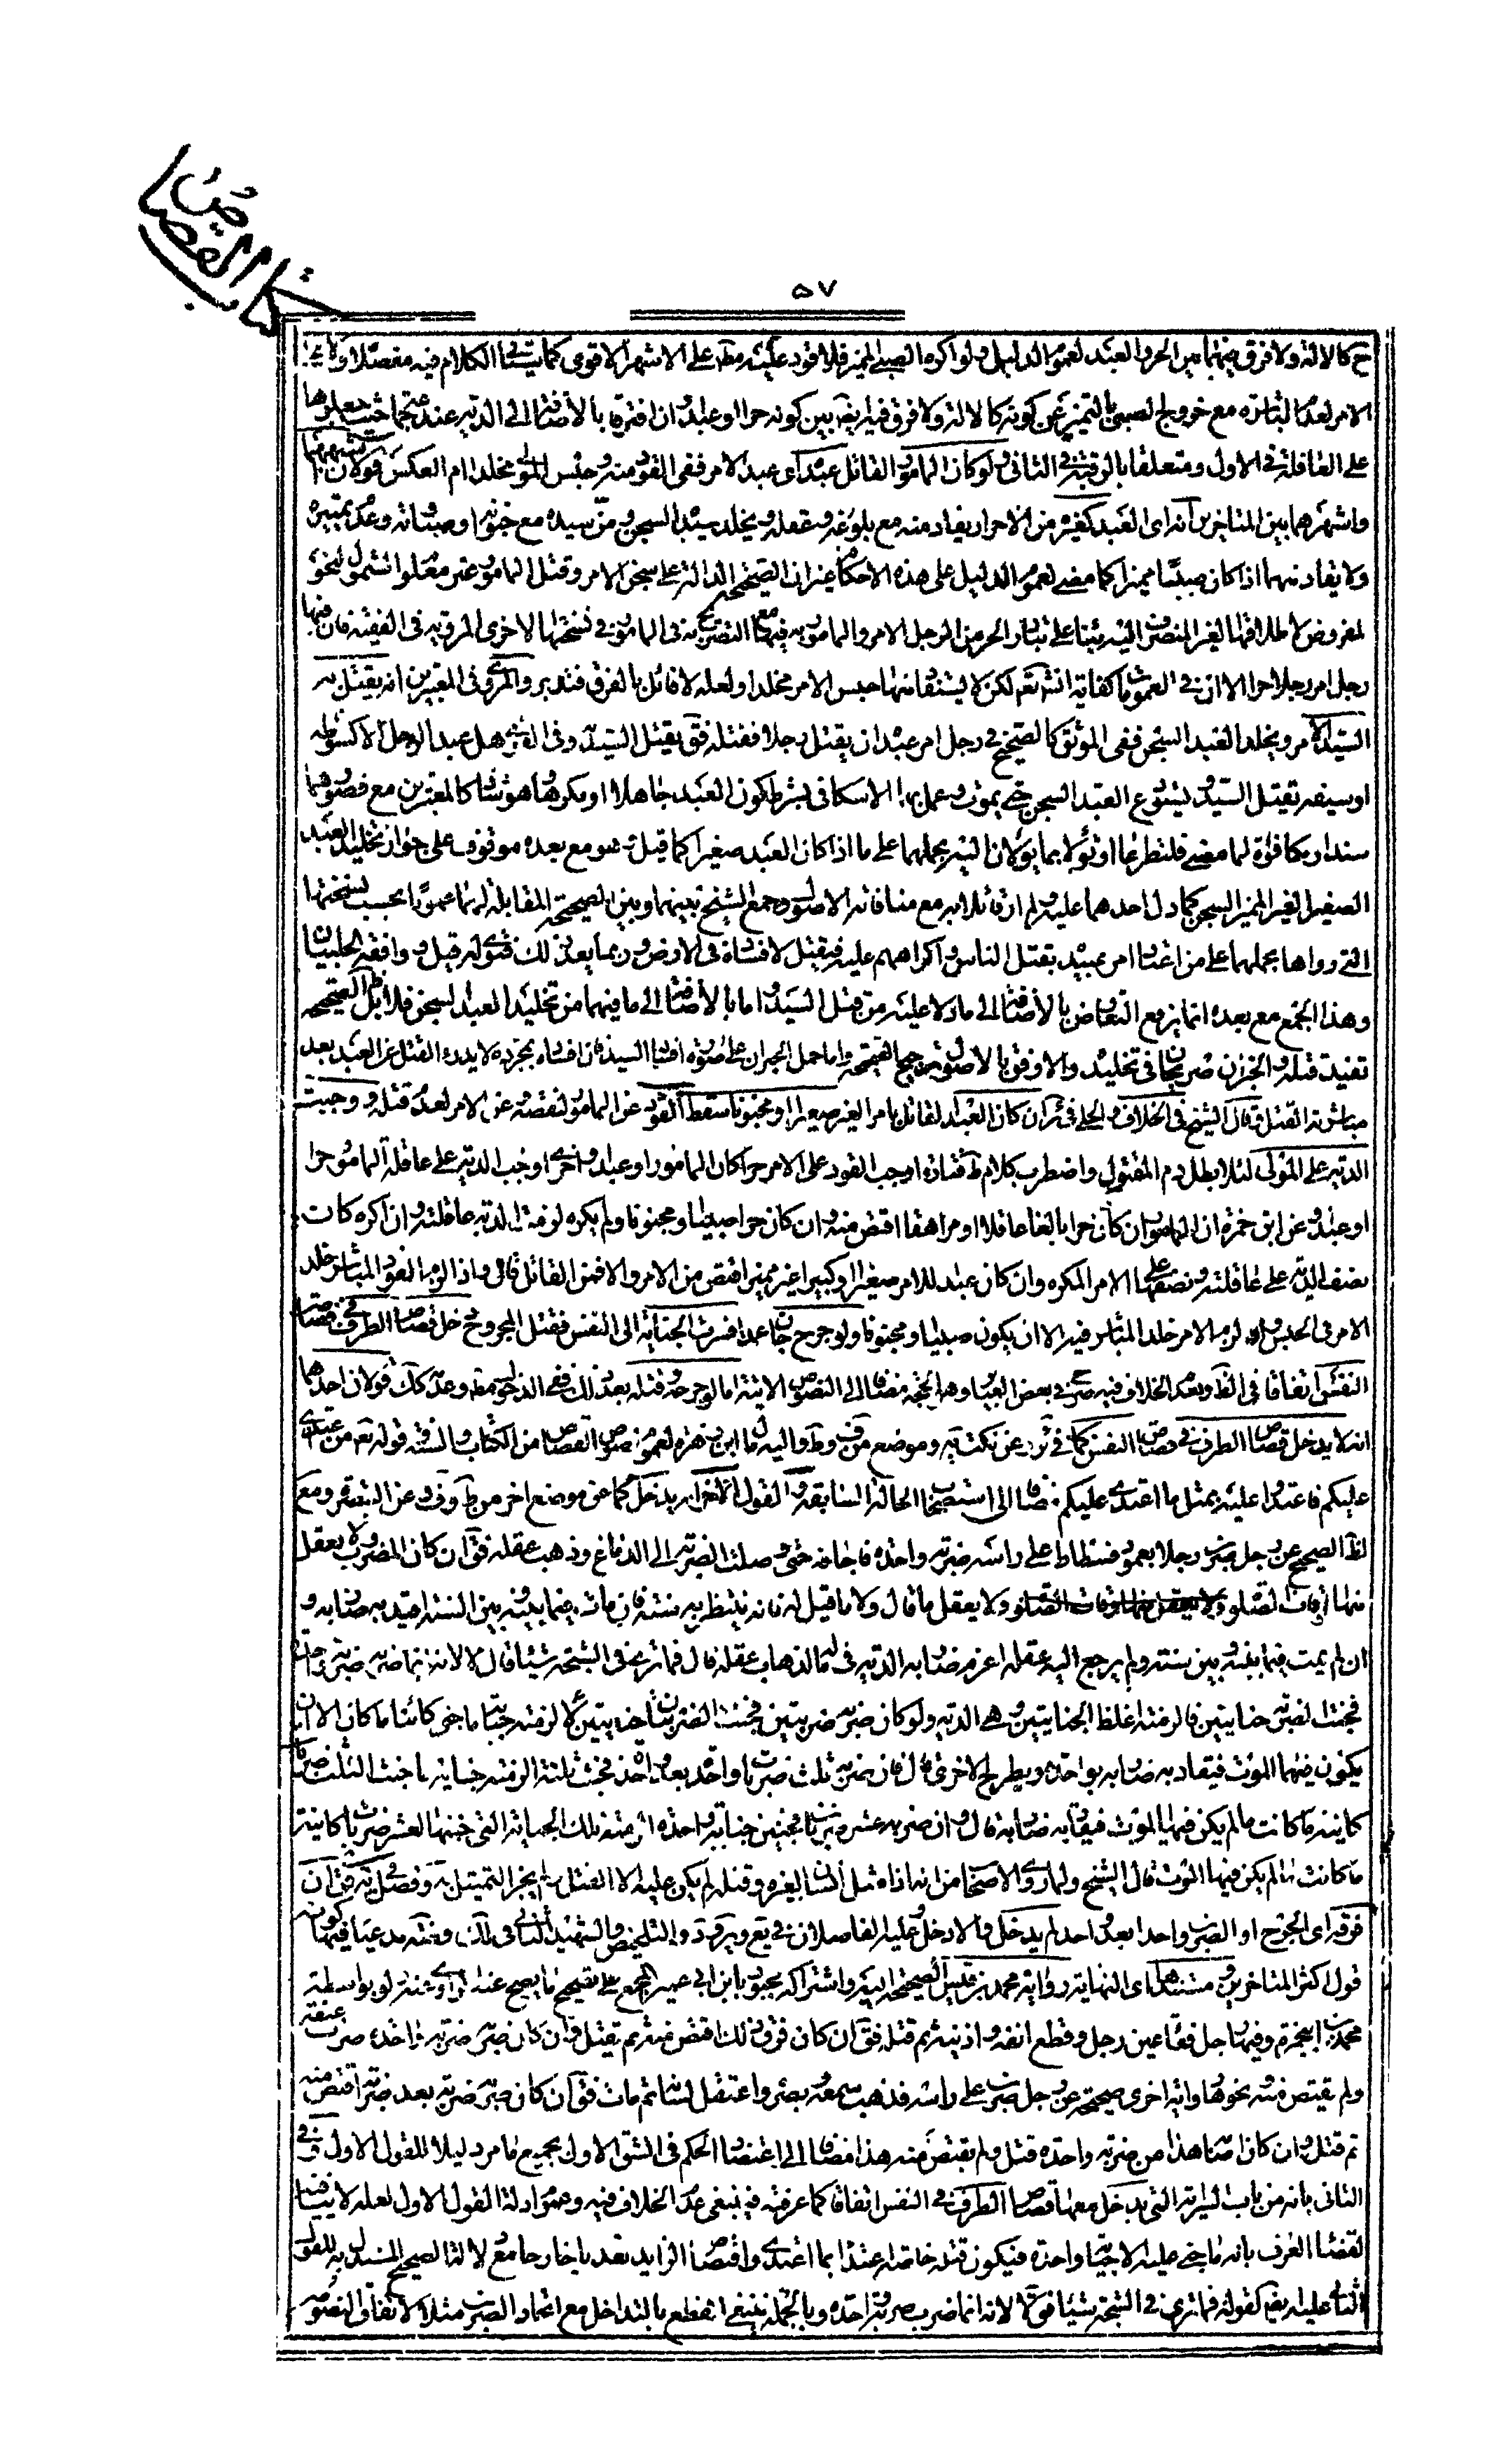 كتاب القصاص
٥٧
ح كالالة ولا فرق بينهما بين الحر والعبد لعموم الدليل ولو اكره الصبي المميز فلا قود عليه مطلقا على الاشهر الاقوى كما يأتي الكلام فيه مفصلا ولا على
الامر لعدم المباشرة مع خروج الصبي بالتميز عن كونه كالالة ولا فرق فيه ايضا بين كونه حرا او عبدا وان افترقا بالاضافة الى الدية عندنا حيث جعلوها
على العاقلة في الاول ومتعلقا بالرقبة في الثاني ولو كان المامور القاتل عبدا اى عبد الامر ففي القود منه وحبس المولى مخلدا ام العكس قولان
واشهرهما بين المتاخرين انه اى العبد كغيره من الاحرار يقاد منه مع بلوغه وعقله ويخلد سيده السجن ومن سيده مع جنونه او صباوته وعدم تمييزه
ولا يقاد منهما اذا كان صبيا مميزا كما مضى لعموم الدليل على هذه الاحكام غير ان الصحيحة الدالة على سجن الامر وقتل المامور غير معلوم الشمول لنحو
المفروض لاطلاقها الغير المنصرف اليه بناء على تبادر الحر من الرجل الامر والمامور به فيها مع التصريح به في المامور في نسختها الاخرى المروية في الفقيه فان فيها
رجل امر رجلا حرا الا ان في العمومات كفاية انش تعم لكن لا يستفاد منها حبس الامر مخلدا ولعله لا قائل بالفرق فتدبر والمروى في المعتبرين انه يقتل به
السيد الامر ويخلد العبد السجن ففي الموثق كالصحيح في رجل امر عبده ان يقتل رجلا فقتله فق يقتل السيد وفي القوى هل عبد الرجل الا كسوطه
او سيفه يقتل السيد ويستودع العبد السجن حتى يموت وعمل بهما الاسكافي بشرط كون العبد جاهلا او مكرها وهو شاذ كالمعتبرين مع قصورهما
سندا ومكافوة لما مضى فلتطرحا او تؤولا بما يؤلان اليه بحملهما على ما اذا كان العبد صغيرا كما قيل وهو مع بعده موقوف على جواز تخليد العبد
الصغير الغير المميز السجن كما دل احدهما عليه ولم ار قائلا به مع منافاته الاصول وجمع الشيخ بينهما وبين الصحيحة المقابلة لهما عموما بحسب نسختها
التي رواها بحملهما على من اعتاد امر عبيده بقتل الناس واكراههم عليه فيقتل لافساده في الارض وربما يعد ذلك فتوى له قيل ووافقه الحلبيان
وهذا الجمع مع بعده انما يرفع التعارض بالاضافة الى ما دلا عليه من قتل السيد واما بالاضافة الى ما فيهما من تخليد العبد السجن فلا بل الصحيحة
تفيد قتله والخبران صريحان في تخليده والاوفق بالاصول ترجيح الصحيحة واما حمل الخبران على صورة افساد السيد فان افساده بمجرده لا يدرء القتل عن العبد بعد
مباشرته القتل وقال الشيخ في الخلاف والحلي في ئر ان كان العبد القاتل بامر الغير صغيرا او مجنونا سقط القود عن المامور لنقصه وعن الامر لعدم قتله ووجبت
الدية على المولى لئلا يبطل دم المقتول واضطرب كلام ط فتارة اوجب القود على الامر حرا كان المامور او عبدا واخرى اوجب الدية على عاقلة المامور حرا
او عبدا وعن ابن حمزة ان المامور ان كان حرا بالغا عاقلا او مراهقا اقتص منه وان كان حرا صبيا او مجنونا ولم يكره لزمت الدية عاقلته وان اكره كانت
نصف الدية على عاقلته ونصفها على الامر المكره وان كان عبدا للامر صغيرا او كبيرا غير مميز اقتص من الامر والا فمن القاتل قال واذا لزم القود المباشر خلد
الامر في الحبس وان لزم الامر خلد المباشر فيه الا ان يكون صبيا او مجنونا ولو جرح جان عمدا فسرت الجناية الى النفس فقتل المجروح دخل قصاص الطرف في قصاص
النفس اتفاقا في الظ وبعدم الخلاف فيه صرح في بعض العبارات وهو الحجة مضافا الى النصوص الاتية اما لو جرحه وقتله بعد ذلك ففي التداخل مطلقا وعدمه كك قولان احدهما
انه لا يدخل قصاص الطرف في قصاص النفس كما في ئر وعن نكت ية وموضع من ف وط واليه مال ابن زهرة لعموم نصوص القصاص من الكتاب والسنة قوله تعم من اعتدى
عليكم فاعتدوا عليه بمثل ما اعتدى عليكم مضافا الى استصحاب الحالة السابقة والقول الاخر انه يدخل كما عن موضع اخر من ط وف وعن التبصرة ومع
لظ الصحيح عن رجل ضرب رجلا بعمود فسطاط على راسه ضربة واحدة فاجافه حتى وصلت الضربة الى الدماغ وذهب عقله فق ان كان المضروب لا يعقل
منها اوقات الصلوة ولا يعقل ما قال ولا ما قيل له فانه ينتظر به سنة فان مات فيما بينه وبين السنة اقيد به ضاربه و
ان لم يمت فيما بينه وبين سنته ولم يرجع اليه عقله اغرم ضاربه الدية في ماله لذهاب عقله قال فما ترى في الشجة شيئا قال لا لانه انما ضربه ضربة واحدة
فجنت الضربة جنايتين فالزمته اغلظ الجنايتين وهي الدية ولو كان ضربه ضربتين فجنت الضربتان جنايتين لالزمته جناية ما جنى كائنا ما كان الا ان
يكون فيهما الموت فيقاد به ضاربه بواحدة ويطرح الاخرى قال فان ضربه ثلث ضربات واحدة بعد واحدة فجنت ثلثة الزمته جناية ما جنت الثلث ضربات
كاينة ما كانت ما لم يكن فيها الموت فيقاد به ضاربه قال وان ضربه عشر ضربات فجنين جناية واحدة الزمته تلك الجناية التي جنتها العشر ضربات كاينة
ما كانت ما لم يكن فيها الموت قال الشيخ ولما رواه الاصحاب من انه اذا مثل انسان بغيره وقتله لم يكن عليه الا القتل ولم يجز التمثيل به وفصل في ية فق ان
فرقه اى الجرح او الضرب واحدا بعد واحد لم يدخل والا دخل وعليه الفاضلان في يع وير وعد والتلخيص والشهيد الثاني في لك وضه مدعيا فيها كونه
قول اكثر المتاخرين ومستندها اى النهاية رواية محمد بن قيس الصحيحة اليه واشتراكه مجبور بابن ابي عمير المجمع على تصحيح ما يصح عنه الراوى عنه لو بواسطة
محمد بن ابي حمزة وفيها رجل فقا عين رجل وقطع انفه واذنيه ثم قتله فق ان كان فرق ذلك اقتص منه ثم يقتل وان كان ضربه ضربة واحدة ضرب عنقه
ولم يقتص منه ونحوها رواية اخرى صحيحة عن رجل ضرب على راسه فذهب سمعه وبصره واعتقل لسانه ثم مات فق ان كان ضربه ضربة بعد ضربة اقتص منه
ثم قتل وان كان اصابه هذا من ضربة واحدة قتل ولم يقتص منه هذا مضافا الى اعتضاد الحكم في الشق الاول بجميع ما مر دليلا للقول الاول وفي
الثاني بانه من باب السراية التي يدخل معها قصاص الطرف في النفس اتفاقا كما عرفته فينبغي عدم الخلاف فيه وعموم ادلة القول الاول لعله لا ينافيه
لقضاء العرف بانه ما جنى عليه الا جناية واحدة فيكون قتله خاصة اعتداء بما اعتدى واقتصاص الزايد يعد زايدا خارجا مع دلالة الصحيح المستدل به للقول
الثاني عليه ايضا كقوله فما ترى في الشجة شيئا فق لا لانه انما ضرب ضربة واحدة وبالجملة ينبغي القطع بالتداخل مع اتحاد الضرب مثلا لاتفاق النصوص